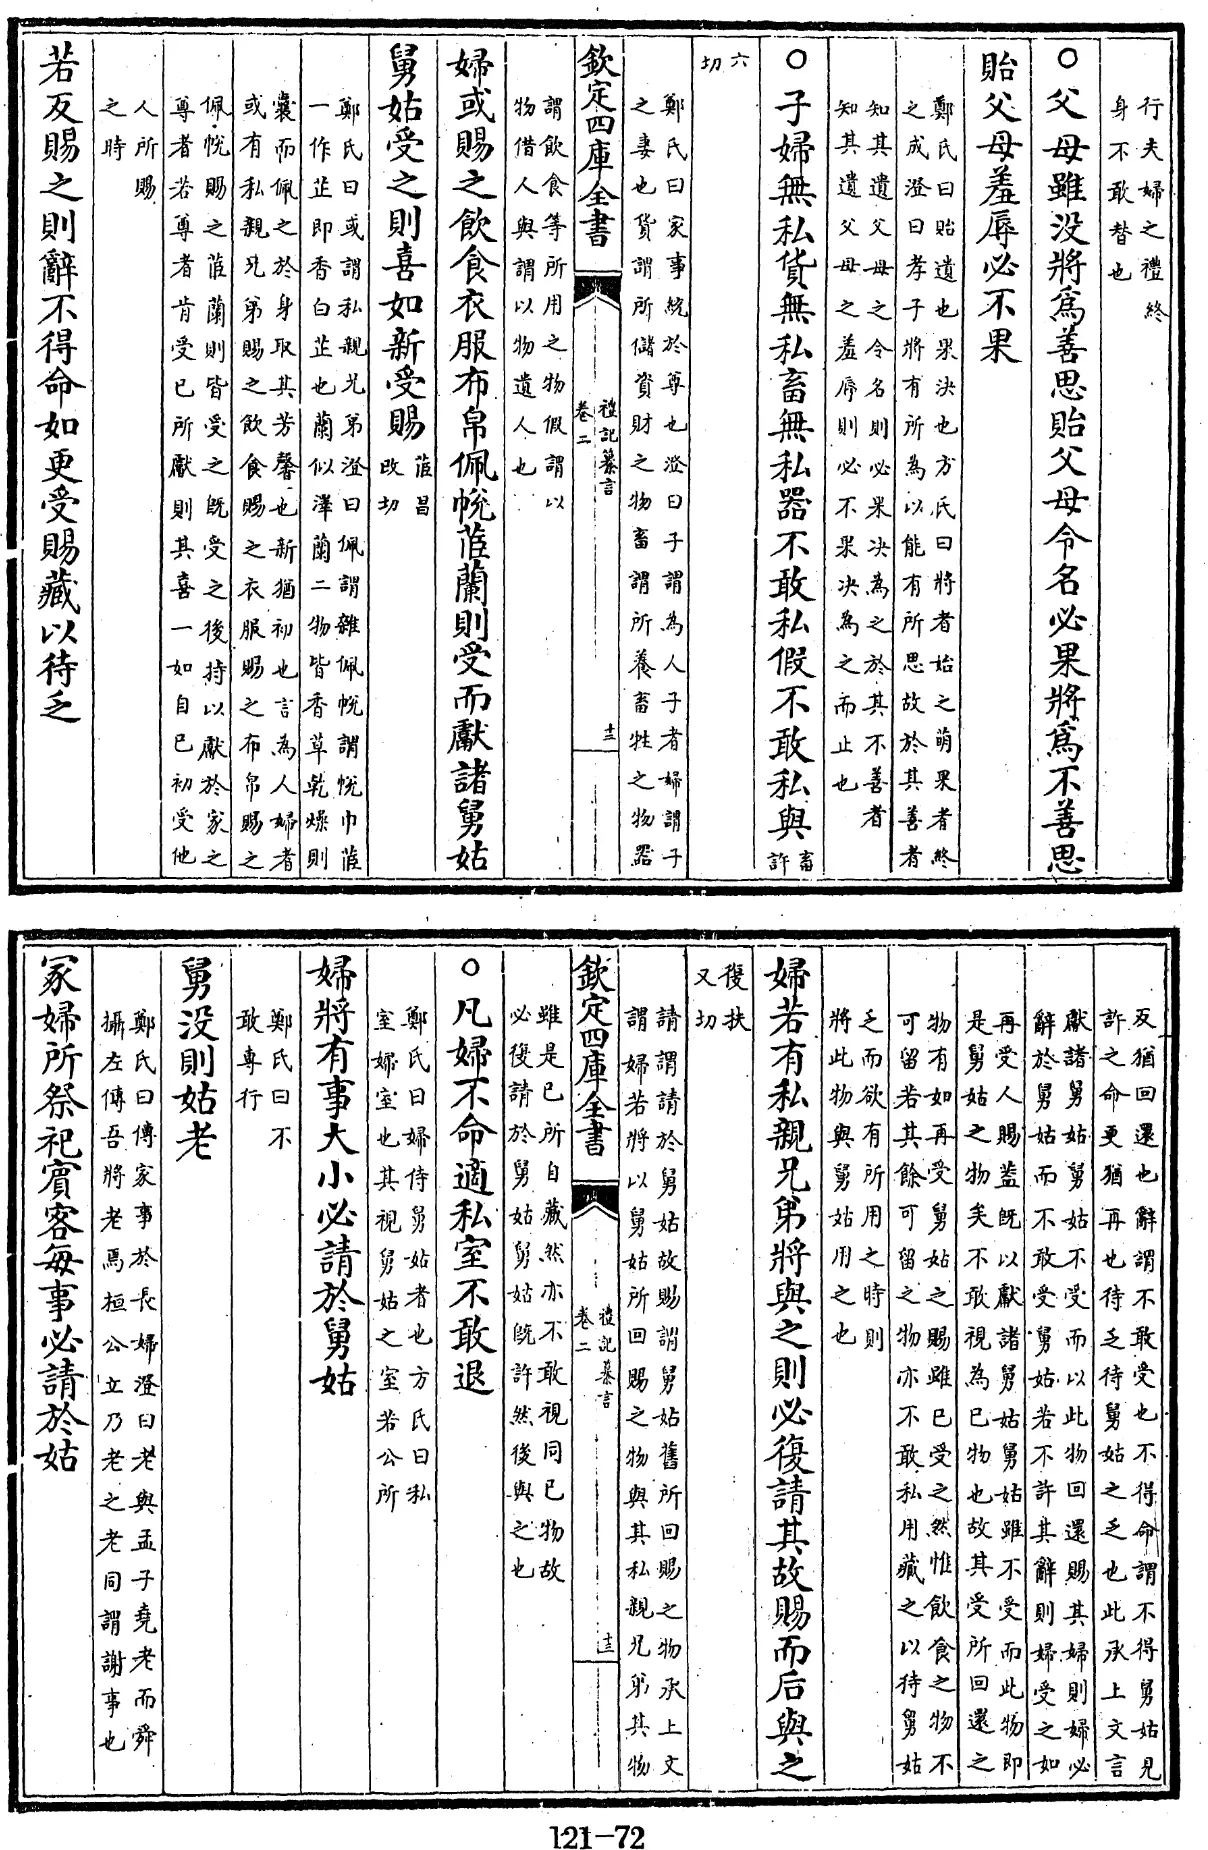 行夫婦之禮終
身不敢替也
○父母雖没將爲善思貽父母令名必果將爲不善思
貽父母羞辱必不果
鄭氏曰貽遺也果決也方氏曰將者始之萌果者終
之成澄曰孝子將有所為以能有所思故於其善者
知其遺父母之令名則必果决為之於其不善者
知其遺父母之羞辱則必不果决為之而止也
○子婦無私貨無私畜無私器不敢私假不敢私與畜許
六切
鄭氏曰家事統於尊也澄曰子謂為人子者婦謂子
之妻也貨謂所儲資財之物畜謂所養畜牲之物器
欽定四庫全書
禮記纂言
卷二
十二
謂飲食等所用之物假謂以
物借人與謂以物遺人也
婦或賜之飲食衣服布帛佩帨茝蘭則受而獻諸舅姑
舅姑受之則喜如新受賜茝昌改切
鄭氏曰或謂私親兄弟澄曰佩謂雜佩帨謂帨巾茝
一作芷即香白芷也蘭似澤蘭二物皆香草乾燥則
囊而佩之於身取其芳馨也新猶初也言為人婦者
或有私親兄弟賜之飲食賜之衣服賜之布帛賜之
佩帨賜之茝蘭則皆受之既受之後持以獻於家之
尊者若尊者肯受已所獻則其喜一如自已初受他
人所賜
之時
若反賜之則辭不得命如更受賜藏以待乏
反猶回還也辭謂不敢受也不得命謂不得舅姑見
許之命更猶再也待乏待舅姑之乏也此承上文言
獻諸舅姑舅姑不受而以此物回還賜其婦則婦必
辭於舅姑而不敢受舅姑若不許其辭則婦受之如
再受人賜蓋既以獻諸舅姑舅姑雖不受而此物即
是舅姑之物矣不敢視為已物也故其受所回還之
物有如再受舅姑之賜雖已受之然惟飲食之物不
可留若其餘可留之物亦不敢私用藏之以待舅姑
乏而欲有所用之時則
將此物與舅姑用之也
婦若有私親兄弟將與之則必復請其故賜而后與之
復扶
又切
請謂請於舅姑故賜謂舅姑舊所回賜之物承上文
謂婦若將以舅姑所回賜之物與其私親兄弟其物
欽定四庫全書
禮記纂言
卷二
十三
雖是已所自藏然亦不敢視同已物故
必復請於舅姑舅姑既許然後與之也
○凡婦不命適私室不敢退
鄭氏曰婦侍舅姑者也方氏曰私
室婦室也其視舅姑之室若公所
婦將有事大小必請於舅姑
鄭氏曰不
敢專行
舅没則姑老
鄭氏曰傳家事於長婦澄曰老與孟子堯老而舜
攝左傳吾將老焉桓公立乃老之老同謂謝事也
冢婦所祭祀賓客每事必請於姑
121-72